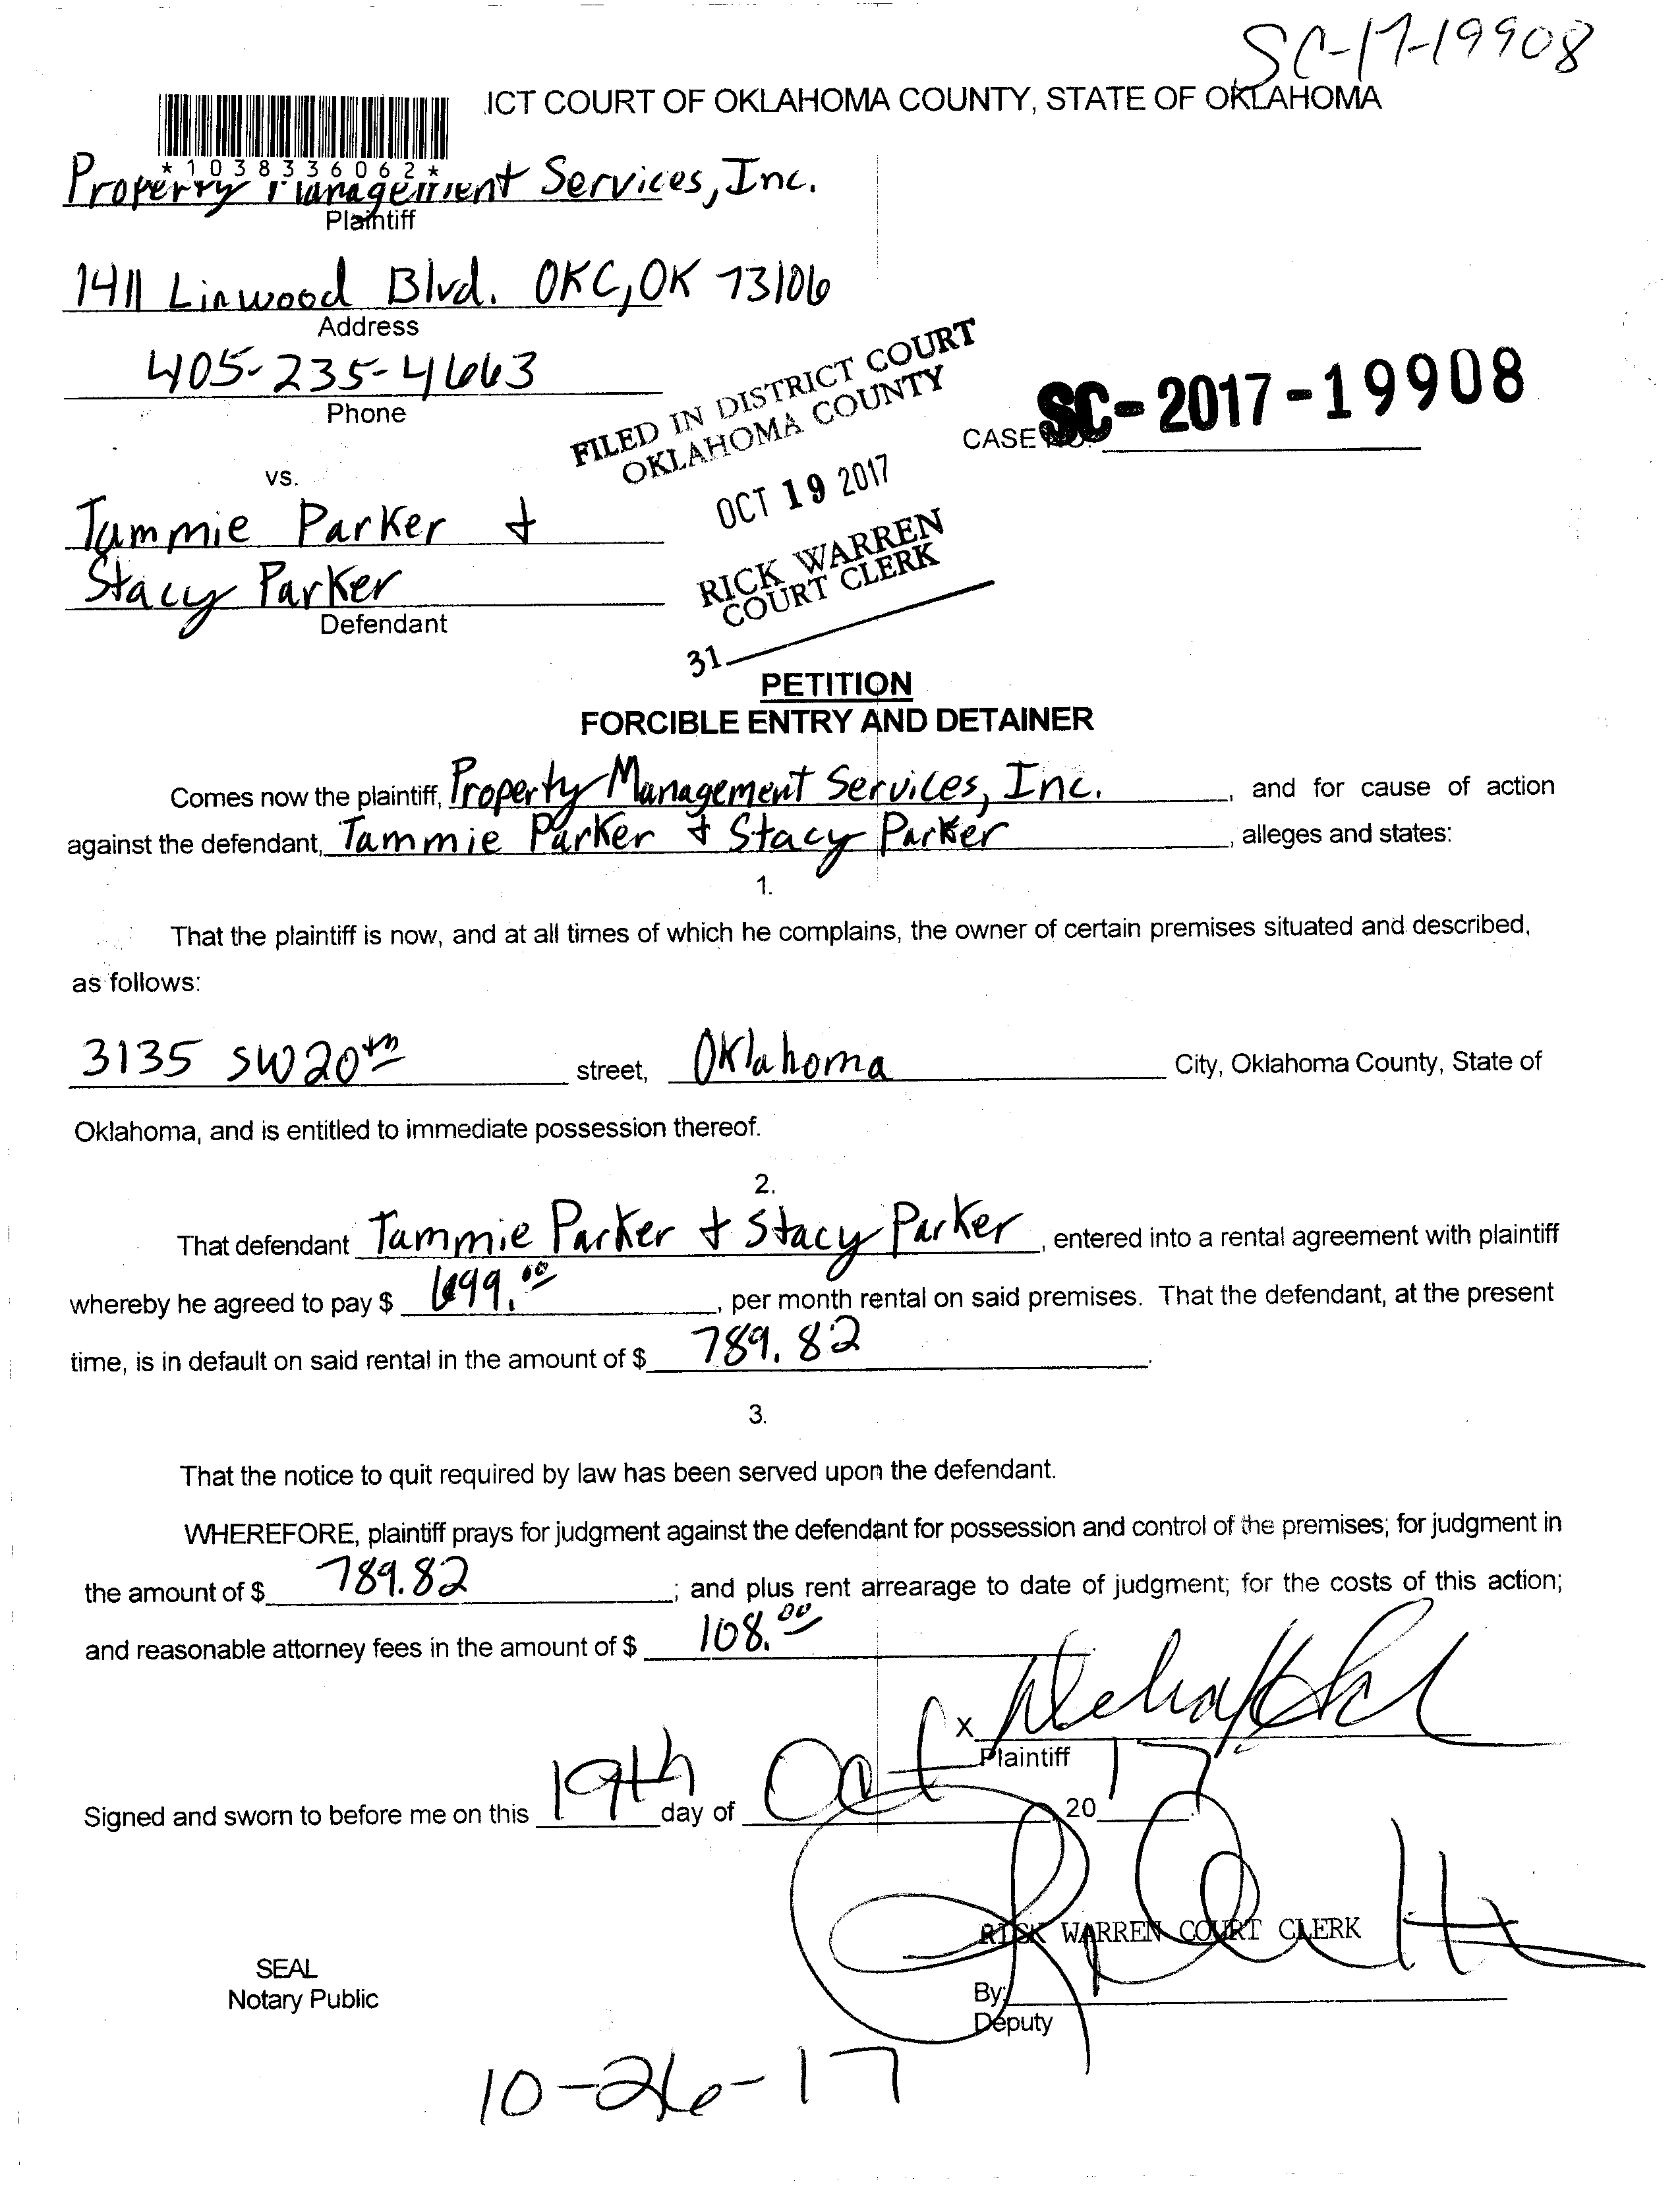 SC-17-19908
ICT COURT OF OKLAHOMA COUNTY, STATE OF OKLAHOMA
*1038336062*
Property Management Services, Inc.
Plaintiff
1411 Linwood Blvd. OKC, OK 73106
Address
405-235-4663
Phone
FILED IN DISTRICT COURT
OKLAHOMA COUNTY
CASE NO. SC-2017-19908
vs.
OCT 19 2017
Tammie Parker &
RICK WARREN
COURT CLERK
Stacy Parker
Defendant
31
PETITION
FORCIBLE ENTRY AND DETAINER
Comes now the plaintiff, Property Management Services, Inc. , and for cause of action
against the defendant, Tammie Parker & Stacy Parker , alleges and states:
1.
That the plaintiff is now, and at all times of which he complains, the owner of certain premises situated and described,
as follows:
3135 SW 20th street, Oklahoma City, Oklahoma County, State of
Oklahoma, and is entitled to immediate possession thereof.
2.
That defendant Tammie Parker & Stacy Parker , entered into a rental agreement with plaintiff
whereby he agreed to pay $ 699.00 , per month rental on said premises. That the defendant, at the present
time, is in default on said rental in the amount of $ 789.82 .
3.
That the notice to quit required by law has been served upon the defendant.
WHEREFORE, plaintiff prays for judgment against the defendant for possession and control of the premises; for judgment in
the amount of $ 789.82 ; and plus rent arrearage to date of judgment; for the costs of this action;
and reasonable attorney fees in the amount of $ 108.00
X
Plaintiff
Signed and sworn to before me on this 19th day of Oct 20 17.
RICK WARREN COURT CLERK
SEAL
Notary Public
By:
Deputy
10-26-17